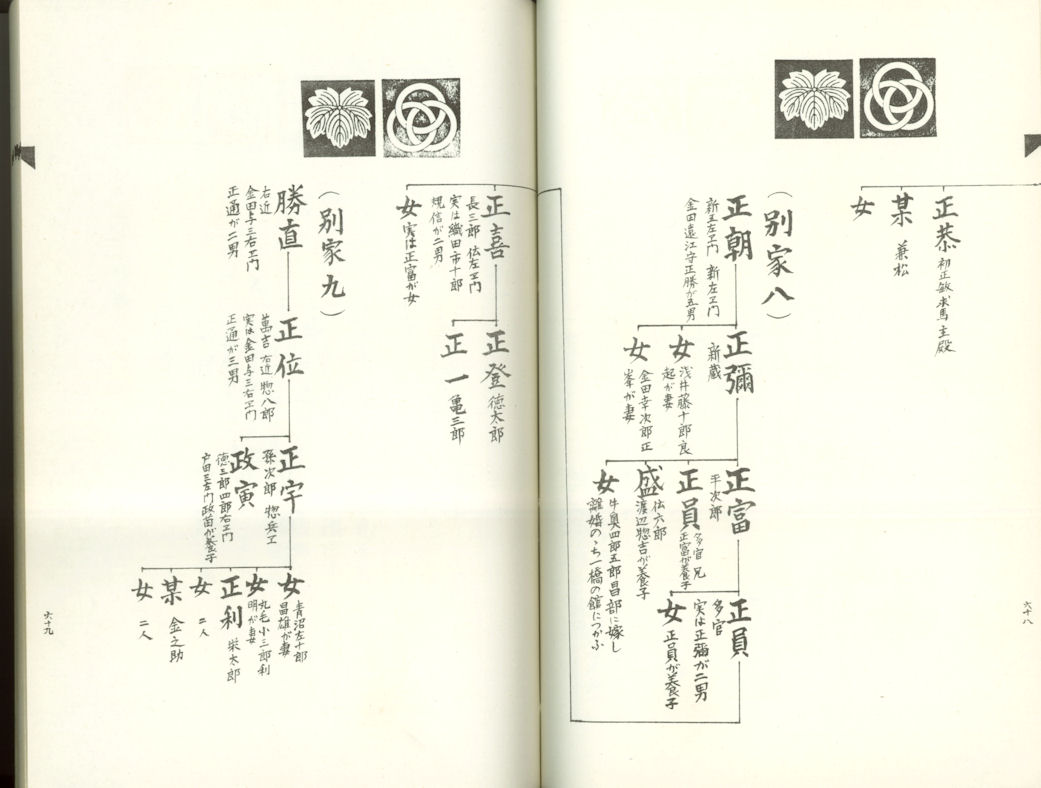 正恭 初正敏 求馬 主殿
某 兼松
女
(別家八)
正朝
新五左ヱ門 新左ヱ門
金田遠江守正勝が五男
正彌
新蔵
女
浅井藤十郎良
起が妻
女
金田幸次郎正
峯が妻
正富
平次郎
正員
多官 兄
正富が養子
盛
伝六郎
渡辺惣吉が養子
女
牛奥四郎五郎昌部に嫁し
離婚のゝち一橋の館につかふ
正員
多官
実は正彌が二男
女 正員が養子
六十八
正喜
長三郎 伝左ヱ門
実は織田市十郎
規信が二男
女 実は正富が女
正登 徳太郎
正一 亀三郎
(別家九)
勝直
右近
金田与三右ヱ門
正通が二男
正位
萬吉 右近 惣八郎
実は金田与三右ヱ門
正通が三男
正宇
孫次郎 惣兵ヱ
政寅
徳三郎 四郎右ヱ門
戸田三左門政苗が養子
女
青沼左十郎
昌雄が妻
女
丸毛小三郎利
明が妻
正利 栄太郎
女 二人
某 金之助
女 二人
六十九